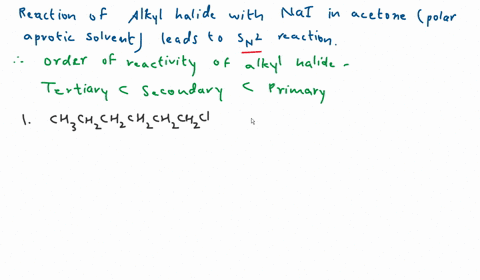 Reaction of Alkyl halide with NaI in acetone (polar
aprotic solvent) leads to SN2 reaction.
∴ order of reactivity of alkyl halide -
Tertiary < Secondary < Primary
1. CH3CH2CH2CH2CH2CH2Cl